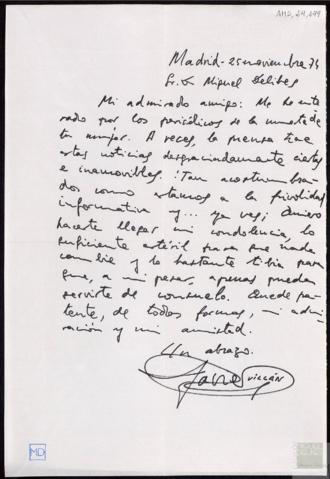 AMD, 64, 199
Madrid-25 noviembre 74
Sr. D. Miguel Delibes
Mi admirado amigo: Me he ente
rado por los periódicos de la muerte de
tu mujer. A veces, la prensa trae
estas noticias desgraciadamente ciertas
e inamovibles. ¡Tan acostumbra-
dos como estamos a la frivolidad
informativa y... ya ves; Quiero
hacerte llegar mi condolencia, lo
suficiente estéril para que nada
cambie y lo bastante tibia para
que, a mi pesar, apenas pueda
servirte de consuelo. Quede pa-
tente, de todas formas, mi admi-
ración y mi amistad.
Un abrazo.
Javier Villán
MD